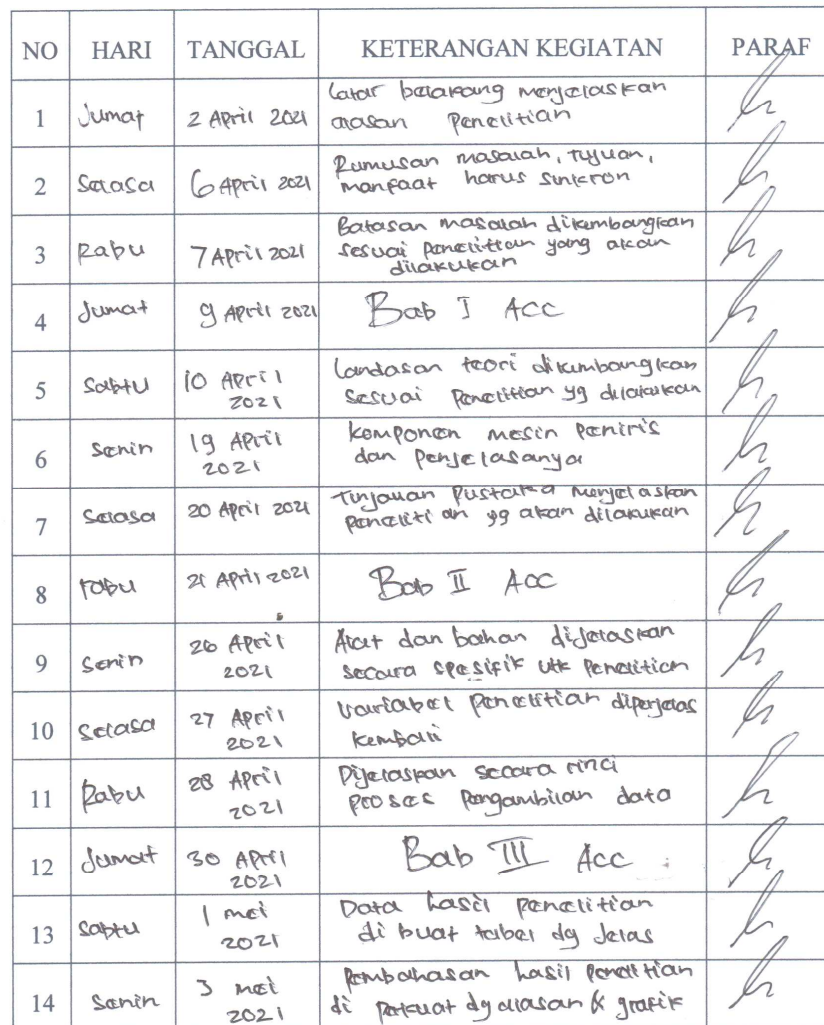 NO HARI TANGGAL KETERANGAN KEGIATAN PARAF
1 Jumat 2 April 2021 Latar belakang menjelaskan
alasan penelitian
2 Selasa 6 April 2021 Rumusan masalah, tujuan,
manfaat harus sinkron
3 Rabu 7 April 2021 Batasan masalah dikembangkan
sesuai penelitian yang akan
dilakukan
4 Jumat 9 April 2021 Bab I ACC
5 Sabtu 10 April
2021
Landasan teori dikembangkan
sesuai penelitian yg dilakukan
6 Senin 19 April
2021
Komponen mesin peniris
dan penjelasanya
7 Selasa 20 April 2021 Tinjauan Pustaka menjelaskan
penelitian yg akan dilakukan
8 rabu 21 April 2021 Bab II ACC
9 Senin 26 April
2021
Alat dan bahan dijelaskan
secara spesifik utk penelitian
10 Selasa 27 April
2021
Variabel penelitian diperjelas
kembali
11 Rabu 28 April
2021
Dijelaskan secara rinci
proses pengambilan data
12 Jumat 30 April
2021
Bab III Acc
13 Sabtu 1 mei
2021
Data hasil penelitian
di buat tabel dg jelas
14 Senin 3 mei
2021
Pembahasan hasil penelitian
di perkuat dg alasan & grafik